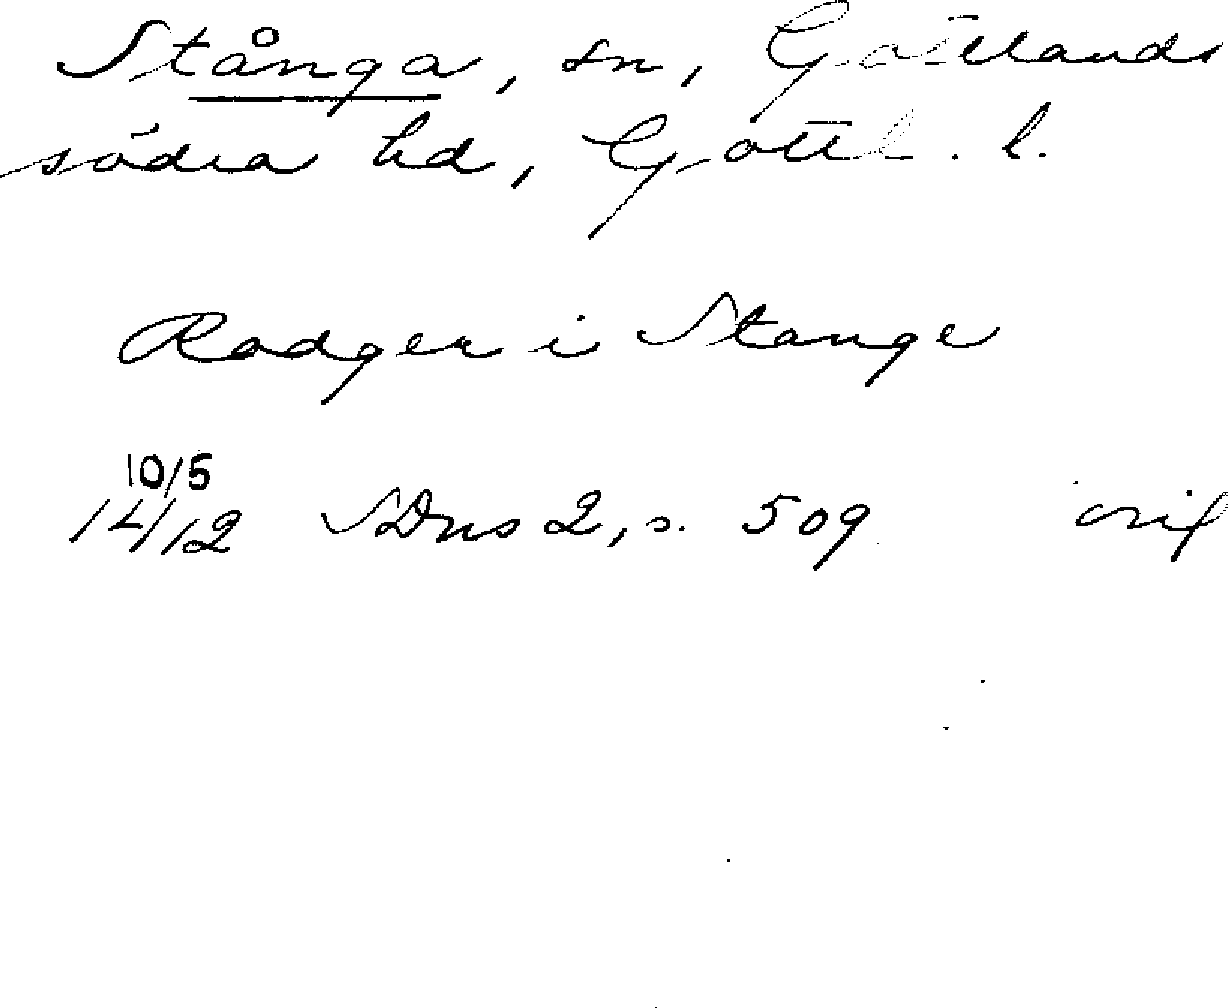 Stånga, sn, Gotlands
södra hd, Gotl. l.
Rodger i Stange
10/5
14/12 SDns 2, s. 509 orig